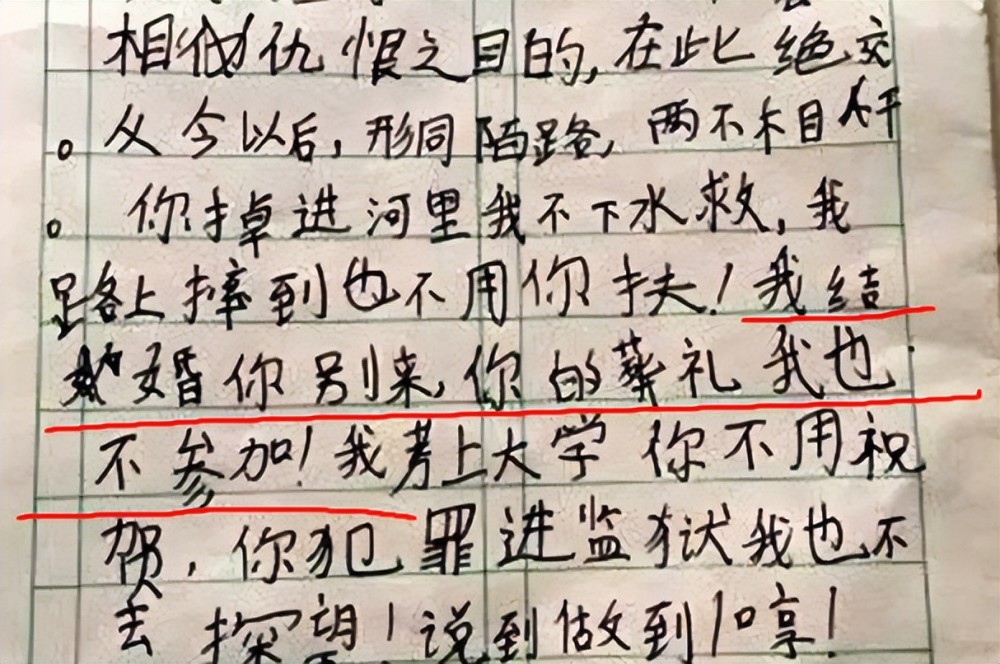 相似仇恨之目的,在此绝交
。从今以后,形同陌路,两不相干
。你掉进河里我不下水救,我
路上摔到也不用你扶!我结
婚你别来,你的葬礼我也
不参加!我考上大学你不用祝
贺,你犯罪进监狱我也不
去探望!说到做到